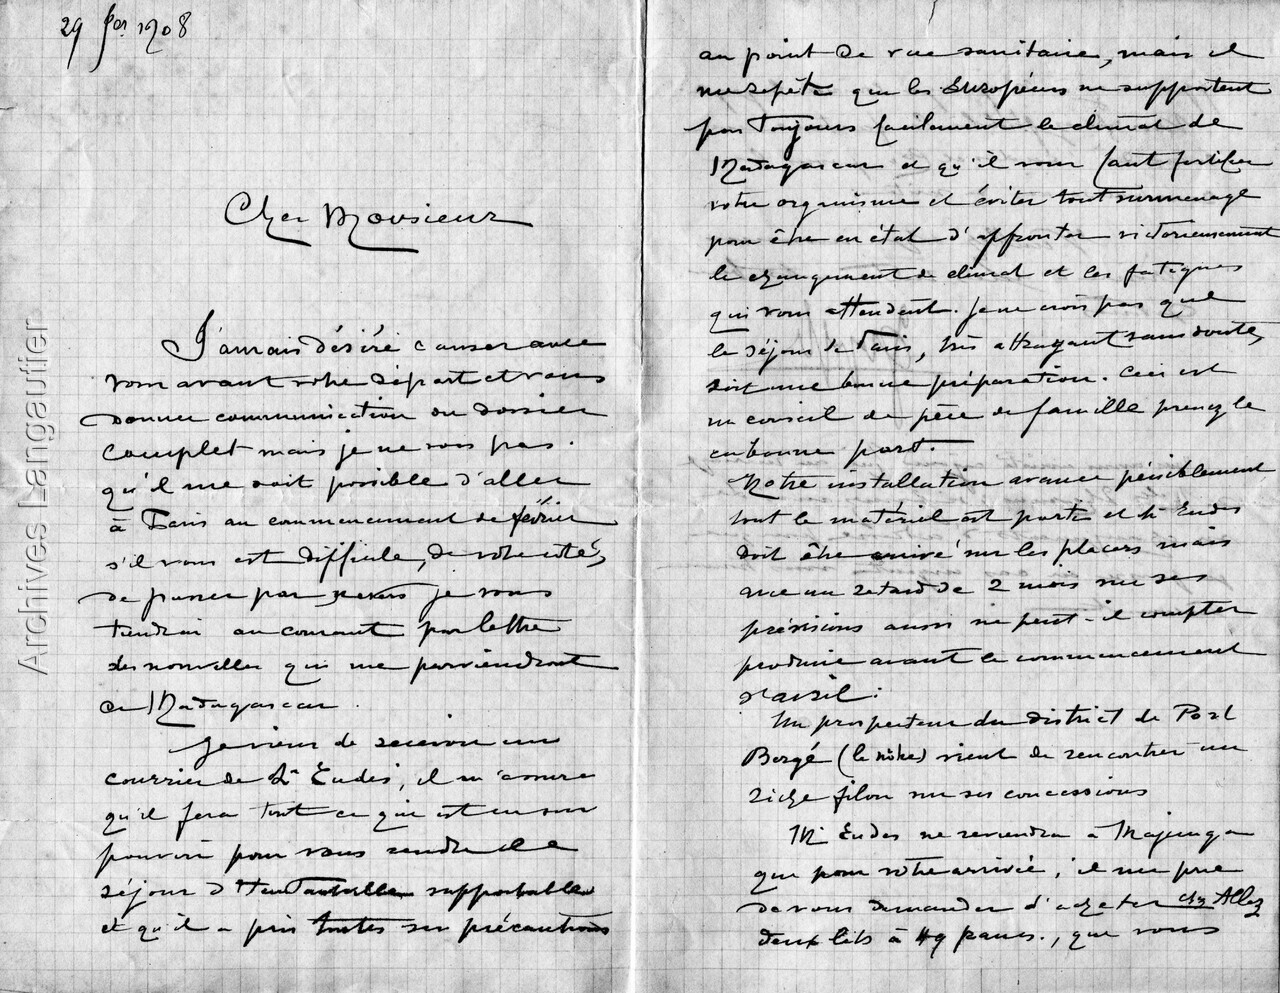 29 Jer 1908
Cher Monsieur
J'aurais désiré causer avec
vous avant votre départ et vous
donner communication du dossier
complet mais je ne vois pas
qu'il me soit possible d'aller
à Paris au commencement de février
s'il vous est difficile, de votre côté,
de passer par Nevers je vous
tiendrai au courant par lettre
des nouvelles qui me parviendront
de Madagascar.
Je viens de recevoir un
courrier de Mr Eudes, il m'assure
qu'il fera tout ce qui est en son
pouvoir pour vous rendre le
séjour d' supportable
et qu'il a pris toutes ses précautions
au point de vue sanitaire, mais il
me répète que les Européens ne supportent
pas toujours facilement le climat de
Madagascar et qu'il vous faut fortifier
votre organisme et éviter tout surmenage
pour être en état d'affronter victorieusement
le changement de climat et les fatigues
qui vous attendent. Je ne crois pas que
le séjour de Paris, très attrayant sans doute,
soit une bonne préparation. Ceci est
un conseil de père de famille prenez le
en bonne part.
Notre installation avance péniblement
tout le matériel est parti et Mr Eudes
doit être arrivé sur les placers mais
avec un retard de 2 mois sur ses
prévisions aussi ne peut-il compter
produire avant le commencement
d'avril.
Un prospecteur du district de Port
Bergé (le nôtre) vient de rencontrer un
riche filon sur ses concessions
Mr Eudes ne reviendra à Majunga
que pour votre arrivée, il me prie
de vous demander d'acheter chez Allez
deux lits à 49 francs., que vous
Archives Langautier